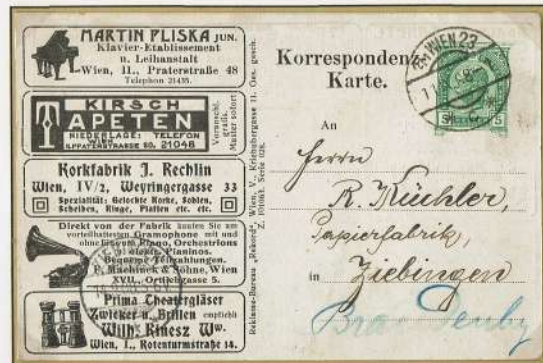 MARTIN PLISKA JUN.
Klavier-Etablissement
u. Leihanstalt
Wien, II., Praterstraße 48
Telephon 21435.
KIRSCH
TAPETEN
NIEDERLAGE: TELEFON
WIEN
II., PRATERSTRASSE 50. 21048
Voranschl.
gratis.
Muster sofort
Korkfabrik J. Rechlin
Wien, IV/2, Weyringergasse 33
Spezialität: Gelochte Korke, Sohlen,
Scheiben, Ringe, Platten etc. etc.
Direkt von der Fabrik kaufen Sie am
vorteilhaftesten Gramophone mit und
ohne Piano, Orchestrions
Pianinos.
Bequeme Teilzahlungen.
P. Machinek & Söhne, Wien
XVII., Ortliebgasse 5.
Prima Theatergläser
Zwicker u. Brillen empfiehlt
Wilh. Rinesz Ww.
Wien, I., Rotenturmstraße 14.
Reklame-Bureau „Rekord“, Wien, V., Kriehubergasse 11. Ges. gesch.
Serie 028.
Korrespondenz-
Karte.
WIEN 23
5 5
An
Herrn
R. Küchler,
Papierfabrik,
in Ziebingen